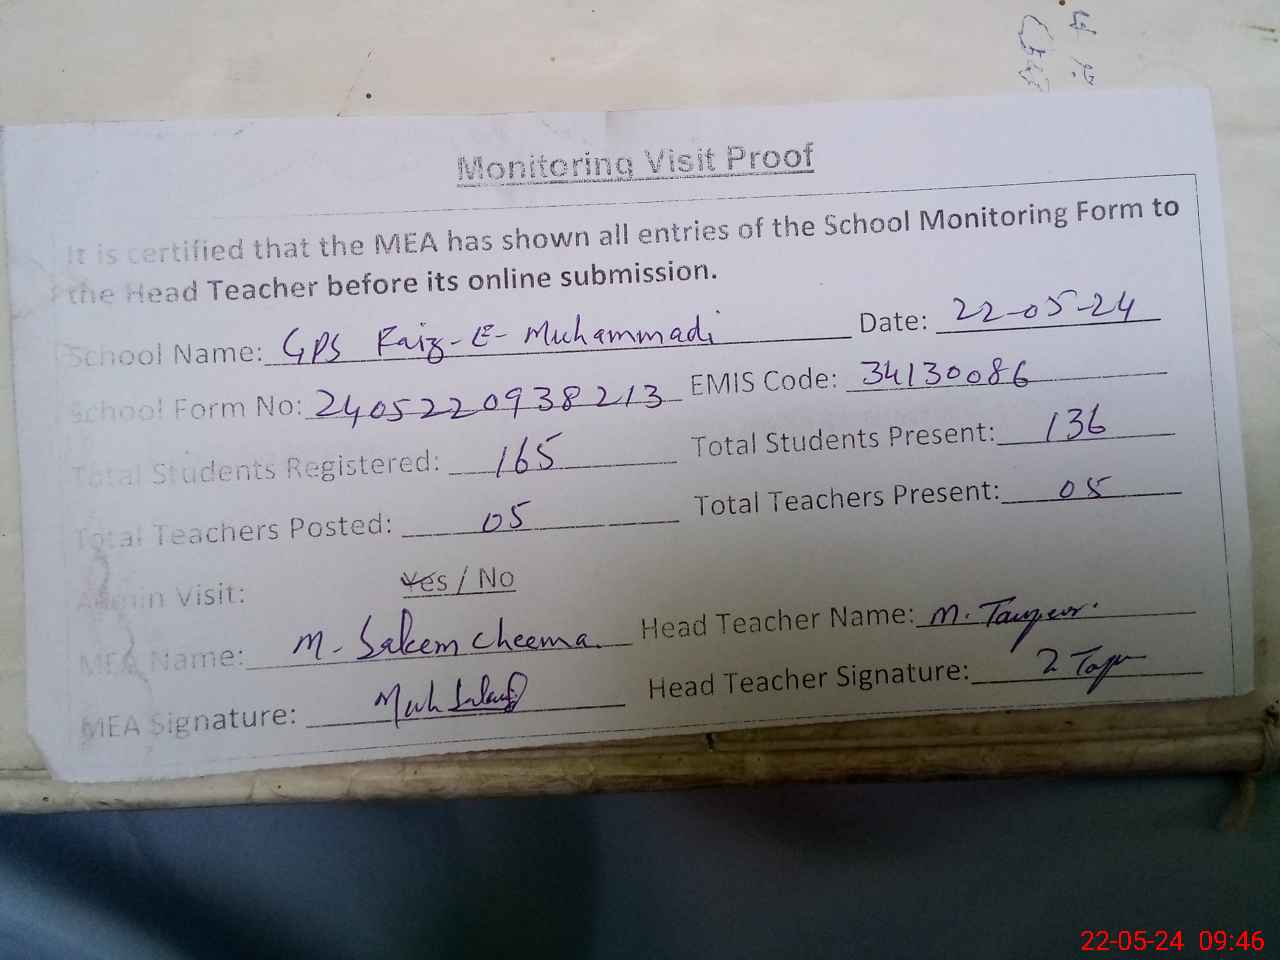 Monitoring Visit Proof
It is certified that the MEA has shown all entries of the School Monitoring Form to
the Head Teacher before its online submission.
School Name: GPS Faiz-E-Muhammadi Date: 22-05-24
School Form No: 2405220938213 EMIS Code: 34130086
Total Students Registered: 165 Total Students Present: 136
Total Teachers Posted: 05 Total Teachers Present: 05
Admin Visit: Yes / No
MEA Name: M. Saleem Cheema Head Teacher Name: M.
MEA Signature: Head Teacher Signature:
22-05-24 09:46